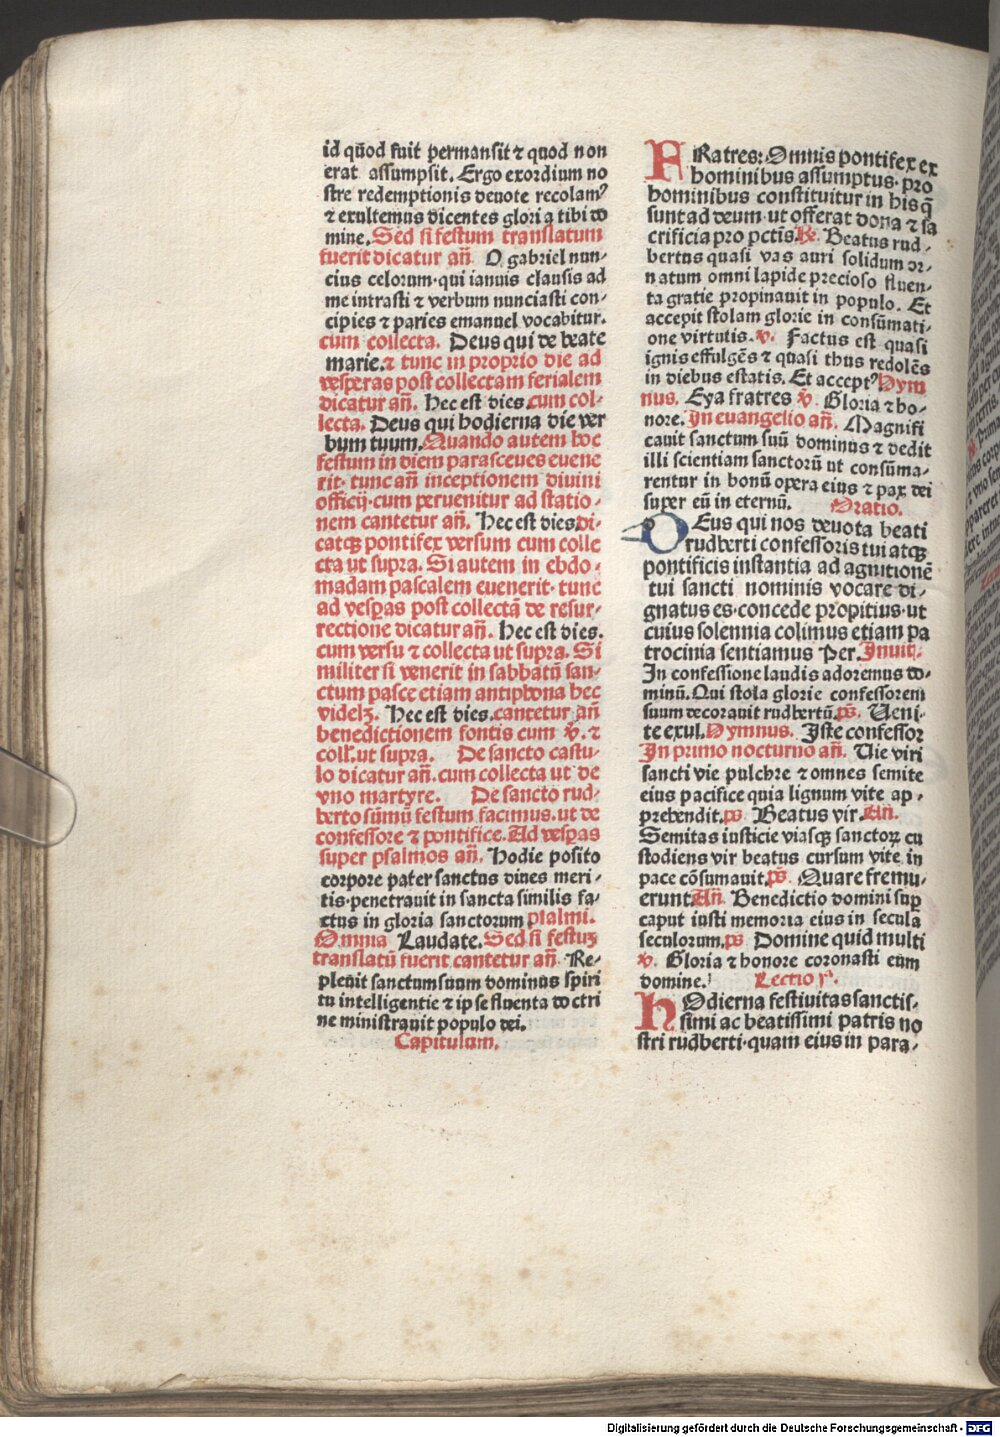 id qūod fuit permansit ⁊ quod non
erat assumpsit. Ergo exordium no
stre redemptionis deuote recolamꝰ
⁊ exultemus dicentes gloria tibi do
mine. Sed si festum translatum
fuerit dicatur añ. O gabriel nun-
cius celorum·qui ianuis clausis ad
me intrasti ⁊ verbum nunciasti con-
cipies ⁊ paries emanuel vocabitur.
cum collecta. Deus qui de beate
marie.⁊ tunc in proprio die ad
vesperas post collectam ferialem
dicatur añ. Hec est dies.cum col-
lecta. Deus qui hodierna die ver
bum tuum. Quando autem hoc
festum in diem parasceues euene
rit· tunc añ inceptionem diuini
officij·cum peruenitur ad statio-
nem cantetur añ. Hec est dies.di-
catqꝫ pontifex versum cum colle
cta ut supra. Si autem in ebdo-
madam pascalem euenerit· tunc
ad vesꝑas post collectā de resur-
rectione dicatur añ. Hec est dies.
cum versu ⁊ collecta ut supra. Si
militer si venerit in sabbatū san-
ctum pasce etiam antiphona hec
videlꝫ. Hec est dies.cantetur añ
benedictionem fontis cum ℣. ⁊
coll.ut supra. De sancto castu-
lo dicatur añ.cum collecta ut de
vno martyre. De sancto rud-
berto sūmū festum facimus.ut de
confessore ⁊ pontifice. Ad vesꝑas
super psalmos añ. Hodie posito
corpore pater sanctus diues meri-
tis·penetrauit in sancta similis fa-
ctus in gloria sanctorum psalmi.
Omnia Laudate. Sed si festuꝫ
translatū fuerit cantetur añ Re-
pleuit sanctum suum dominus spiri
tu intelligentie ⁊ ipse fluenta doctri
ne ministrauit populo dei.
Capitulum.
FRatres: Omnis pontifex ex
hominibus assumptus· pro
hominibus constituitur in his q̄
sunt ad deum·ut offerat dona ⁊ sa
crificia pro pctīs. ℟. Beatus rud-
bertus quasi vas auri solidum or-
natum omni lapide precioso fluen-
ta gratie propinauit in populo. Et
accepit stolam glorie in consūmati-
one virtutis. ℣. Factus est quasi
ignis effulgēs ⁊ quasi thus redolēs
in diebus estatis. Et acceptꝰ Hym
nus. Eya fratres ℣. Gloria ⁊ ho-
nore. In euangelio añ. Magnifi
cauit sanctum suū dominus ⁊ dedit
illi scientiam sanctorū ut consūma-
rentur in bonū opera eius ⁊ pax dei
super eū in eternū. Oratio.
DEus qui nos deuota beati
rudberti confessoris tui atqꝫ
pontificis instantia ad agnitionē
tui sancti nominis vocare di-
gnatus es·concede propitius·ut
cuius solennia colimus etiam pa
trocinia sentiamus Per. Inuit.
In confessione laudis adoremus do-
minū. Qui stola glorie confessorem
suum decorauit rudbertū. ps̄. Ueni-
te exul. Hymnus. Iste confessor
In primo nocturno añ. Uie viri
sancti vie pulchre ⁊ omnes semite
eius pacifice quia lignum vite ap-
prehendit.ps̄ Beatus vir. Añ.
Semitas iusticie viasqꝫ sanctoꝝ cu
stodiens vir beatus cursum vite in
pace cōsumauit.ps̄. Quare fremu-
erunt Añ. Benedictio domini suꝑ
caput iusti memoria eius in secula
seculorum.ps̄ Domine quid multi
℣. Gloria ⁊ honore coronasti eum
domine. Lectio j.
HOdierna festiuitas sanctis-
simi ac beatissimi patris no
stri rudberti·quam eius in para-
Digitalisierung gefördert durch die Deutsche Forschungsgemeinschaft - DFG